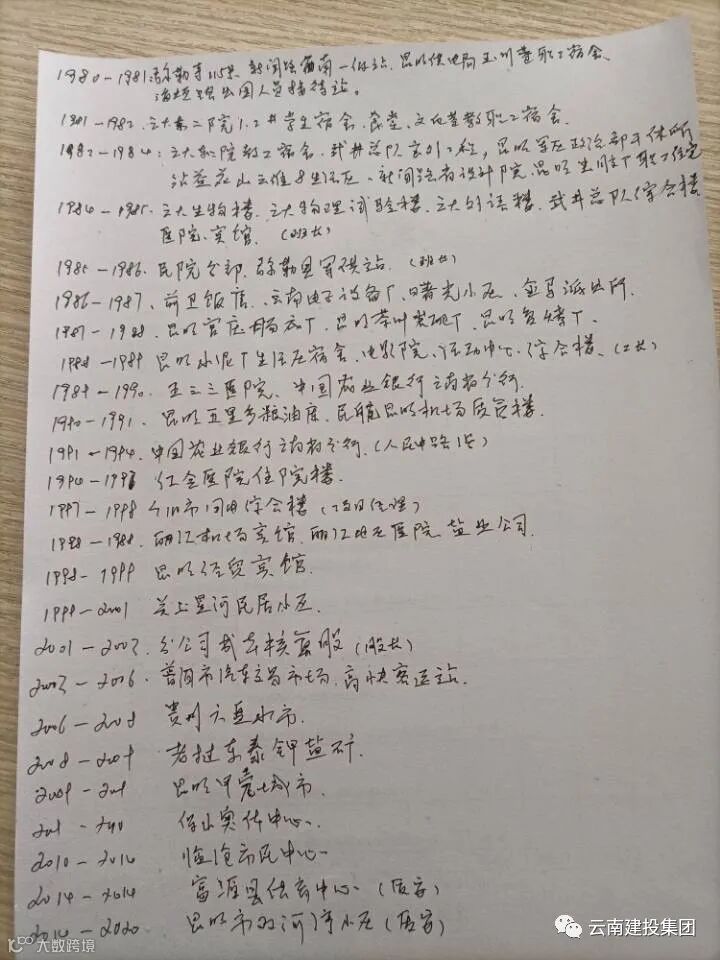 1980-1981 弥勒寺115#、新闻路西南一仓站、昆明供电局玉川巷职工宿舍、
出国人员接待站。
1981-1982. 云大东二院1.2#学生宿舍、食堂、教职工宿舍.
1982-1984: 云大东二院教工宿舍、武井总队、昆明军区政治部干休所
沾益花山云维生活区、新闻路省设计院、昆明职工住宅
1984-1985. 云大生物楼、云大物理试验楼、云大外语楼、武井总队综合楼
医院、宾馆. (班长)
1985-1986. 民院分部. 弥勒县军供站. (班长)
1986-1987、前卫饭店、云南电子设备厂、曙光小区、金马派出所.
1987-1988. 昆明官庄肠衣厂、昆明茶叶发酵厂、昆明复烤厂、
1988-1989 昆明水泥厂生活区宿舍、电影院、活动中心、综合楼、(工长)
1989-1990. 三医院、中国农业银行云南省分行.
1990-1991. 昆明五里多粮油库、民航昆明机场候宾楼.
1991-1994. 中国农业银行云南省分行. (人民中路1#)
1994-1997 红会医院住院楼.
1997-1998 个旧市国电综合楼 (项目经理)
1998-1988. 丽江机场宾馆、丽江地区医院 盐业公司.
1998-1999 昆明经贸宾馆.
1999-2001 关上星河民居小区.
2001-2003. 分公司成本核算股 (股长)
2003-2006. 普洱市汽车交易市场、高快客运站.
2006-2008 贵州六盘水市.
2008-2009 老挝东泰钾盐矿.
2009- 昆明甲壳虫城市.
保山奥体中心.
2010-2010 临沧市民中心
2014-2014 富源县体育中心 (返家)
2014-2020 昆明市小区 (返家)
大数跨境
云南建投集团